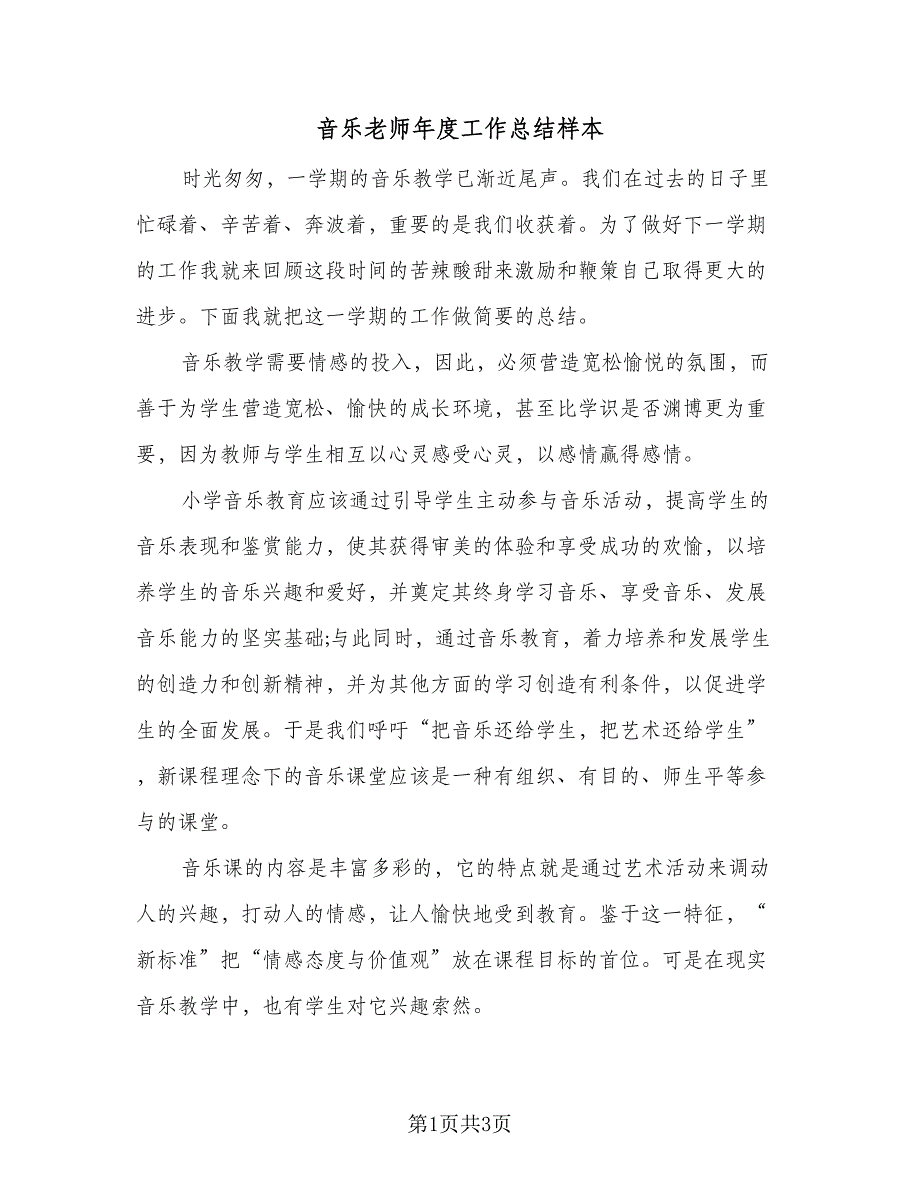 音乐老师年度工作总结样本
时光匆匆，一学期的音乐教学已渐近尾声。我们在过去的日子里
忙碌着、辛苦着、奔波着，重要的是我们收获着。为了做好下一学期
的工作我就来回顾这段时间的苦辣酸甜来激励和鞭策自己取得更大的
进步。下面我就把这一学期的工作做简要的总结。
音乐教学需要情感的投入，因此，必须营造宽松愉悦的氛围，而
善于为学生营造宽松、愉快的成长环境，甚至比学识是否渊博更为重
要，因为教师与学生相互以心灵感受心灵，以感情赢得感情。
小学音乐教育应该通过引导学生主动参与音乐活动，提高学生的
音乐表现和鉴赏能力，使其获得审美的体验和享受成功的欢愉，以培
养学生的音乐兴趣和爱好，并奠定其终身学习音乐、享受音乐、发展
音乐能力的坚实基础;与此同时，通过音乐教育，着力培养和发展学生
的创造力和创新精神，并为其他方面的学习创造有利条件，以促进学
生的全面发展。于是我们呼吁“把音乐还给学生，把艺术还给学生”
，新课程理念下的音乐课堂应该是一种有组织、有目的、师生平等参
与的课堂。
音乐课的内容是丰富多彩的，它的特点就是通过艺术活动来调动
人的兴趣，打动人的情感，让人愉快地受到教育。鉴于这一特征，“
新标准”把“情感态度与价值观”放在课程目标的首位。可是在现实
音乐教学中，也有学生对它兴趣索然。
第1页共3页